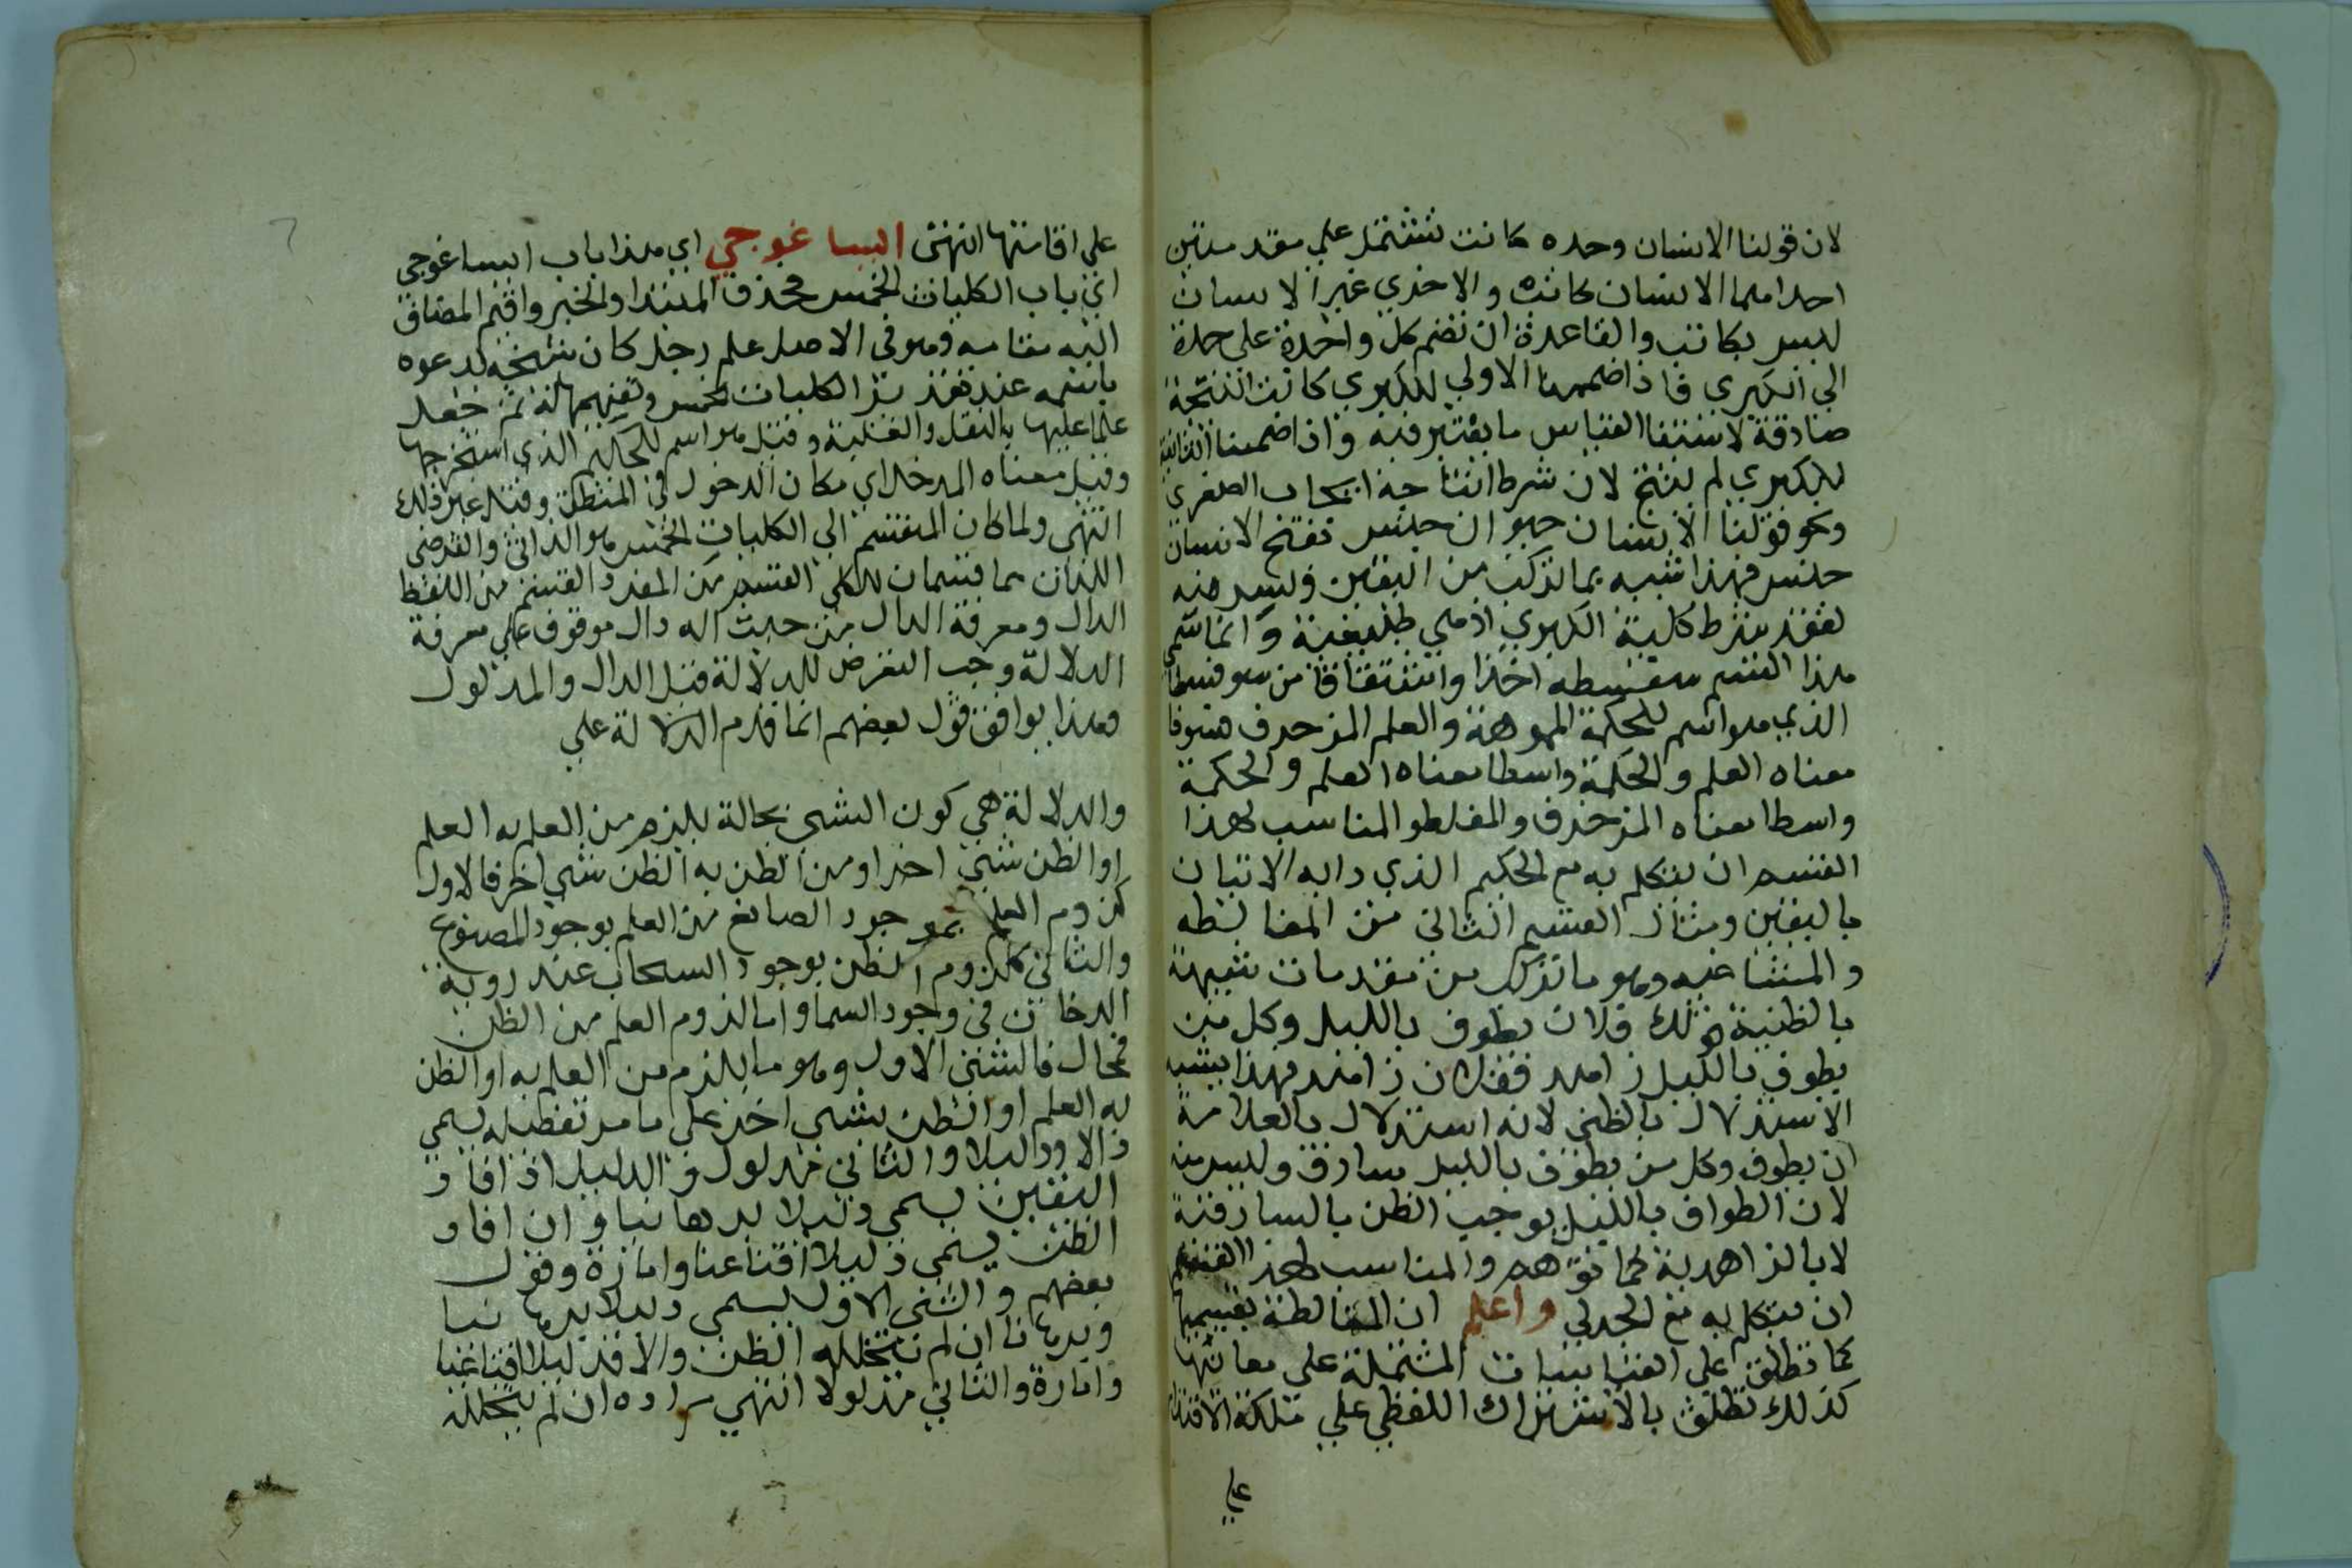 لان قولنا الانسان وحده كاتب تشتمل علي مقدمتين
احداهما الانسان كاتب والاخري غير الانسان
ليس بكاتب والقاعدة ان تضم كل واحدة علي حدة
الي الكبري فاذا ضممنا الاولي للكبري كانت النتيجة
صادقة لاستيفا القياس ما يعتبر فيه واذا ضممنا الثانية
للكبري لم ينتج لان شرط انتاجه ايجاب الصغري
ونحو قولنا الانسان حيوان جنس تنتج الانسان
جنس فهذا شبيه بما تركب من اليقين وليس منه
لفقد شرط كلية الكبري اذ هي طبيعية وانما سمي
هذا القسم سفسطه اخذا واشتقاقا من سوفسطا
الذي هو اسم للحكمة المموهة والعلم المزحرف فسوفا
معناه العلم والحكمة واسطا معناه العلم والحكمة
واسطا معناه المزخرف والمغلط والمناسب لهذا
القسم ان يتكلم به مع الحكيم الذي دابه الاتيان
باليقين ومثال القسم الثاني من المغالطه
والمشاغبه وهو ما تركب من مقدمات شبيهة
بالظنية قولك فلان يطوف بالليل وكل من
يطوف بالليل زاهد ففلان زاهد فهذا يشبه
الاستدلال بالظني لانه استدلال بالعلامة
ان يطوف وكل من يطوف بالليل سارق وليس منه
لان الطواف بالليل يوجب الظن بالسارقية
لا بالزاهدية كما توهم والمناسب لهذا القسم
ان يتكلم به مع الجدلي واعلم ان المغالطة بقسميها
كما تطلق علي القياسات المشتملة علي معانيها
كذلك تطلق بالاشتراك اللفظي علي ملكة الاقتدار
علي
علي اقامتها انتهي ايساغوجي اي هذا باب ايساغوجي
اي باب الكليات الخمس فحذف المبتدا والخبر واقيم المضاف
اليه مقامه وهو في الاصل علم رجل كان شيخه يدعوه
باسمه عند تقرير الكليات الخمس وتفهيمها له ثم جعل
علما عليها بالنقل والغلبة وقيل هو اسم للحكيم الذي استخرجها
وقيل معناه المدخل اي مكان الدخول في المنطق وقيل غير ذلك
انتهي ولما كان المنقسم الي الكليات الخمس هو الذاتي والعرضي
اللذان هما قسمان للكلي القسم من المفرد القسم من اللفظ
الدال ومعرفة الدال من حيث انه دال موقوف علي معرفة
الدلالة وجب التعرض للدلالة قبل الدال والمدلول
وهذا يوافق قول بعضهم انما قدم الدلالة علي
والدلالة هي كون الشي بحالة يلزم من العلم به العلم
او الظن بشي اخر او من الظن به الظن بشي اخر فالاول
كلزوم العلم بموجود الصانع من العلم بوجود المصنوع
والثاني كلزوم الظن بوجود السحاب عند روية
الدخان في وجود السما واما لزوم العلم من الظن
فمحال فالشي الاول وهو ما يلزم من العلم به او الظن
به العلم او الظن بشي اخر علي ما مر تفصيله يسمي
دالا ودليلا والثاني مدلول والدليل اذ افاد
اليقين يسمي دليلا برهانيا وان افاد
الظن يسمي دليلا اقناعيا وامارة وقول
بعضهم والشي الاول يسمي دليلا برهانيا
وبرهانا ان لم يتخلله الظن والا فدليلا اقناعيا
وامارة والثاني مدلولا انتهي مراده ان لم يتخلله